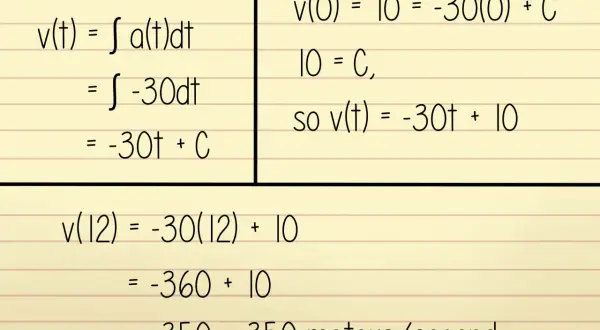 v(t) = ∫ a(t)dt
= ∫ -30dt
= -30t + C
v(0) = 10 = -30(0) + C
10 = C,
so v(t) = -30t + 10
v(12) = -30(12) + 10
= -360 + 10